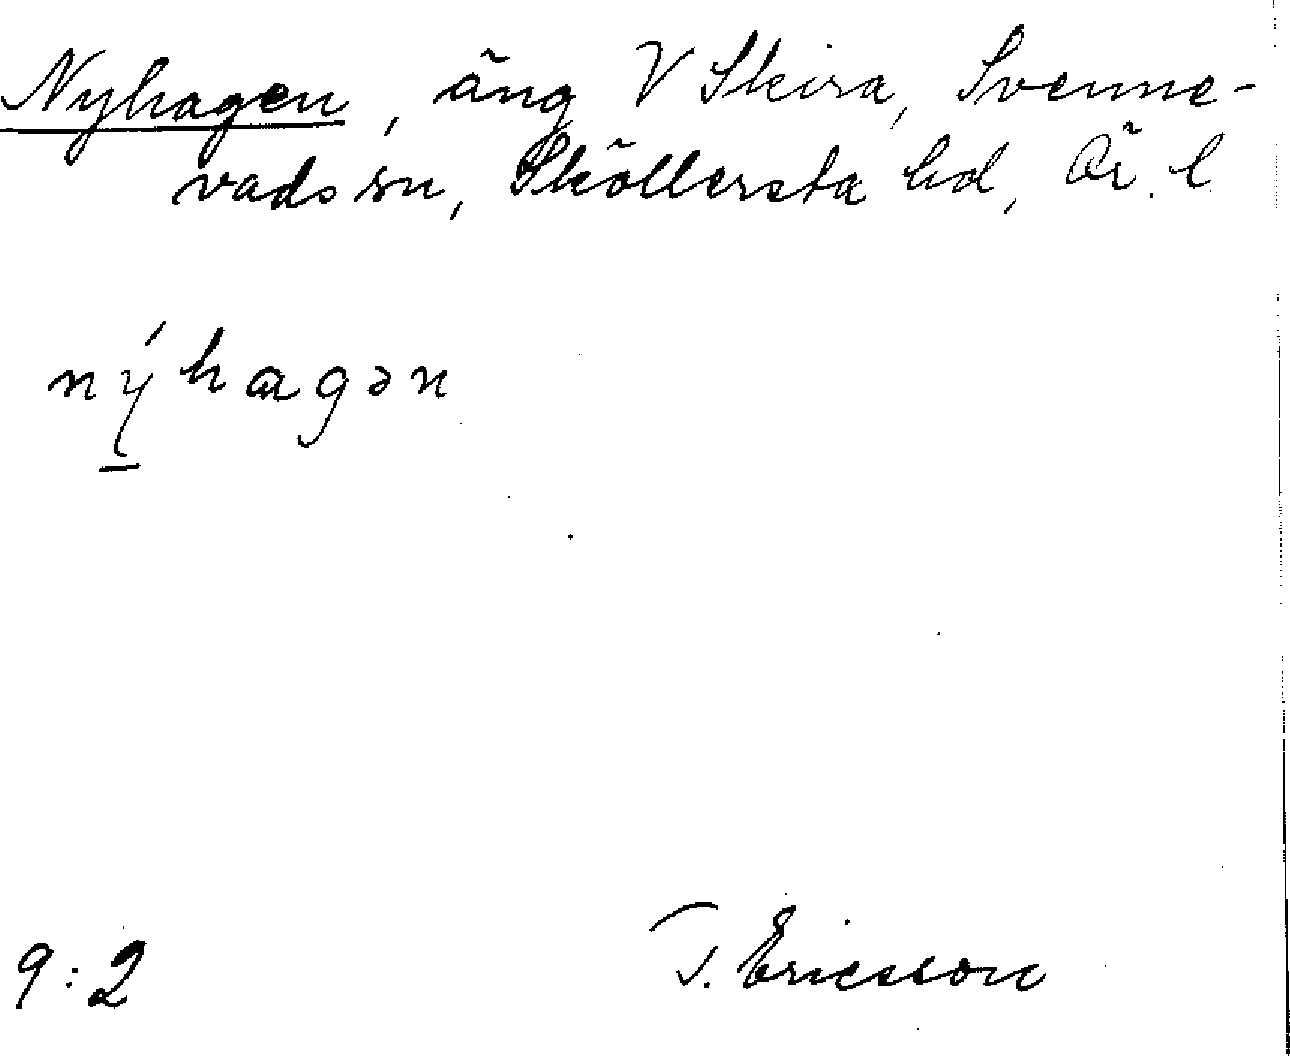 Nyhagen, äng V Skira, Svenne-
vads sn, Sköllersta hd, Ör. l
nýhagən
9:2
T. Ericsson